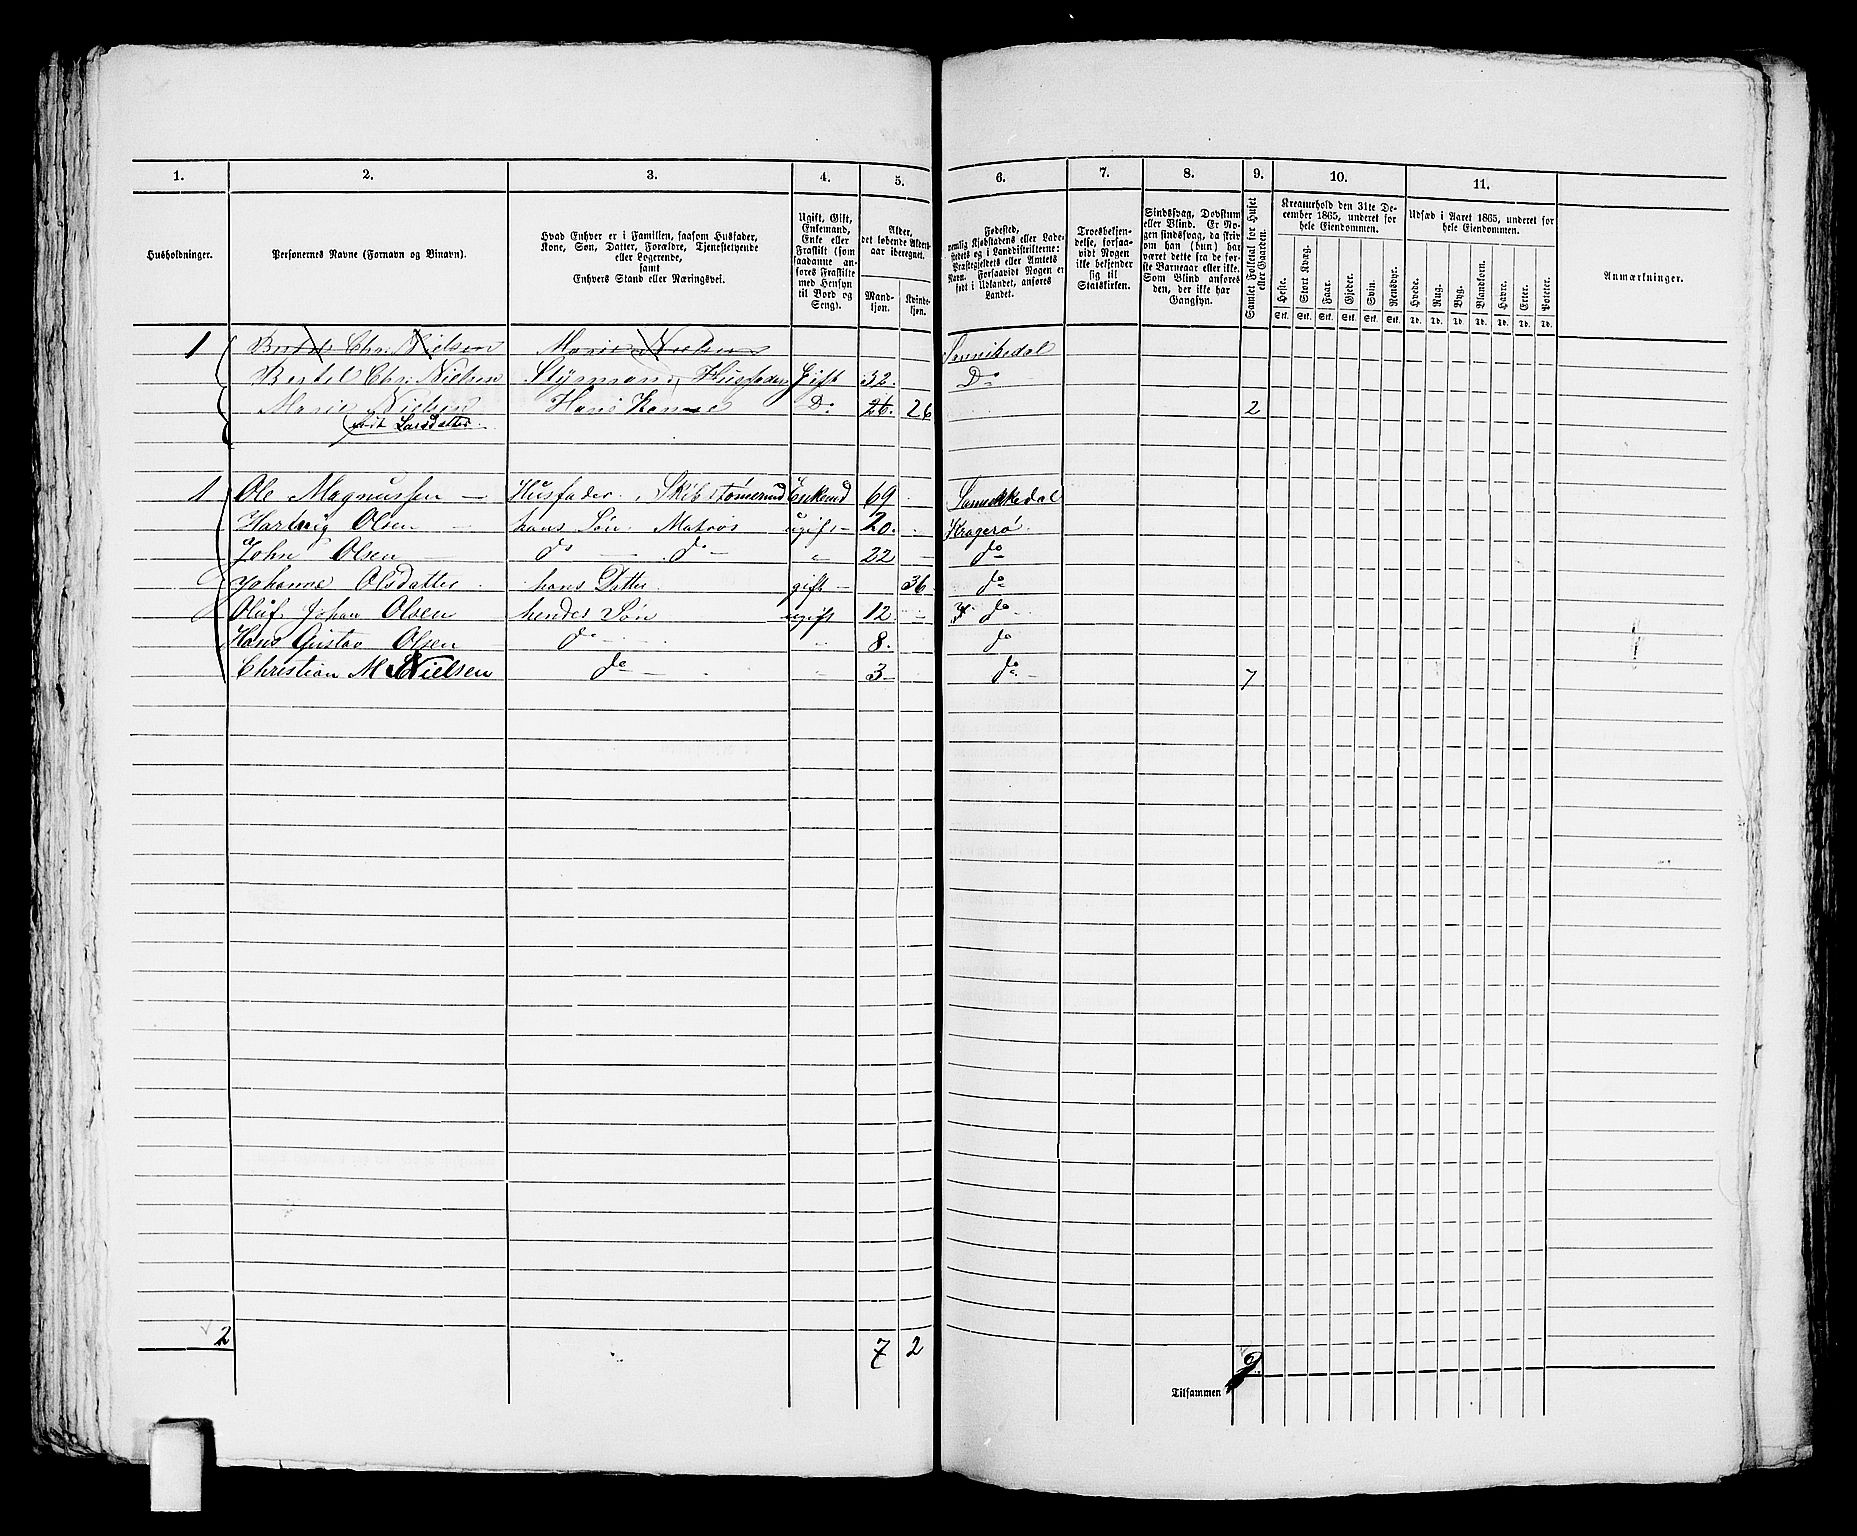 1. 2. 3. 4. 5. 6. 7. 8. 9. 10. 11.
Husholdninger.
Personernes Navne (Fornavn og Binavn).
Hvad Enhver er i Familien, saasom Husfader,
Kone, Søn, Datter, Forældre, Tjenestetyende
eller Logerende,
samt
Enhvers Stand eller Næringsvei.
Ugift, Gift,
Enkemand,
Enke eller
Fraskilt (som
saadanne an-
føres Fraskilte
med Hensyn
til Bord og
Seng).
Alder,
det løbende Alders-
aar iberegnet.
Mand-
kjøn.
Kvinde-
kjøn.
Fødested,
nemlig Kjøbstadens eller Lade-
stedets og i Landdistrikterne:
Præstegjeldets eller Amtets
Navn. Forsaavidt Nogen er
født i Udlandet, anføres
Landet.
Troesbekjen-
delse, forsaa-
vidt Nogen
ikke bekjender
sig til
Statskirken.
Sindssvag, Døvstum
eller Blind. Er No-
gen sindssvag, da skriv
om han (hun) har
været dette fra de før-
ste Barneaar eller ikke.
Som Blind anføres
den, der ikke har
Gangsyn.
Samlet Folketal for Huset
eller Gaarden.
Kreaturhold den 31te De-
cember 1865, underet for
hele Eiendommen.
Heste. Stort Kvæg. Faar. Gjeder. Svin. Rensdyr.
Stk. Stk. Stk. Stk. Stk. Stk.
Udsæd i Aaret 1865, underet for
hele Eiendommen.
Hvede. Rug. Byg. Blandkorn. Havre. Erter. Poteter.
Td. Td. Td. Td. Td. Td. Td.
Anmærkninger.
1 Chr. Nielsen Marie Nielsen Sannikedal
Bertel Chr. Nielsen Styrmand, Husfader Gift 32. Do
Marie Nielsen Hans Kone Do 26. 26 2
født Larsdatter.
1 Ole Magnussen — Husfader, Skibstømmermd Enkemd 69 Sannikkedal
Hartvig Olsen — hans Søn. Matros ugift — 20. Kragerø.
John Olsen — do — do — " 22 — do
Johanne Olsdatter hans Datter gift — 36. do
Oluf Johan Olsen hendes Søn ugift 12 — do
Hans Gustav Olsen do — 8. do
Christian M. Nielsen do — 3 — do. 7
2 7 2
Tilsammen 9.